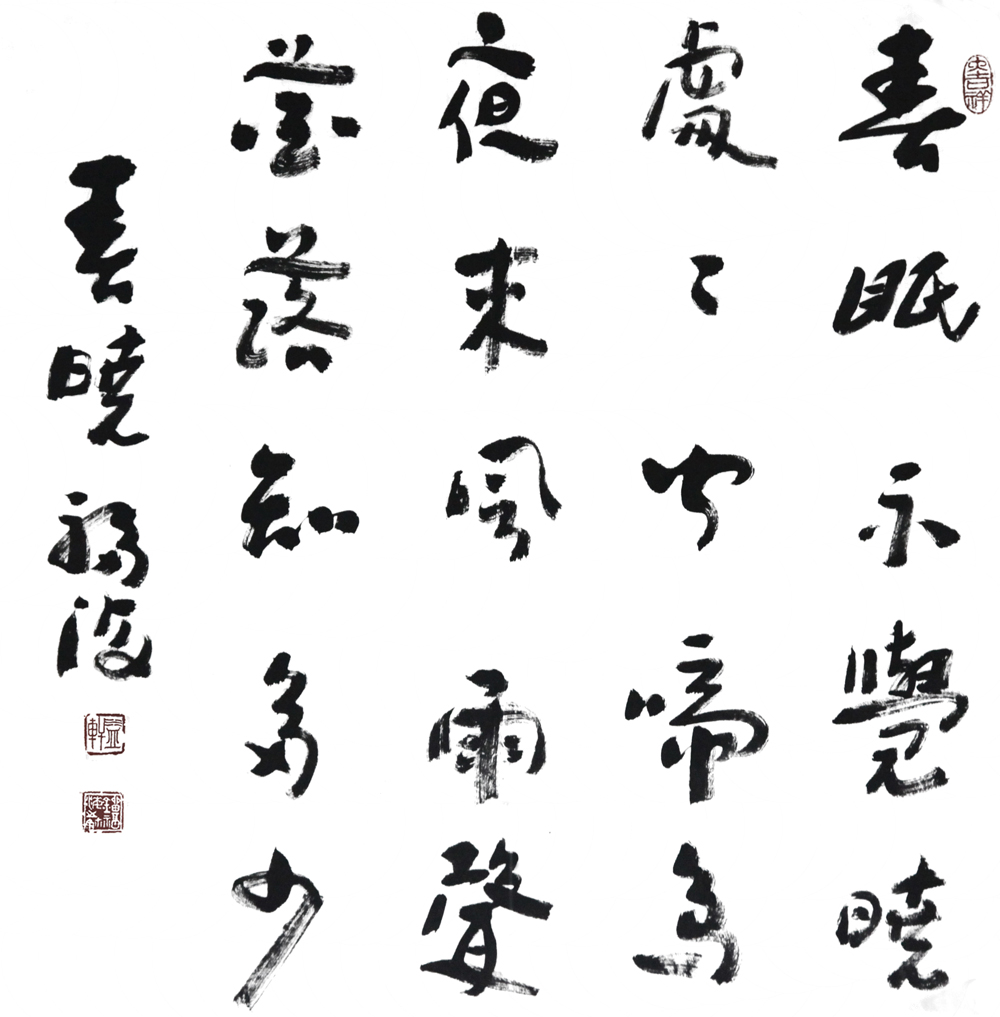 春眠不覺曉
處〻聞啼鳥
夜來風雨聲
花落知多少
春曉